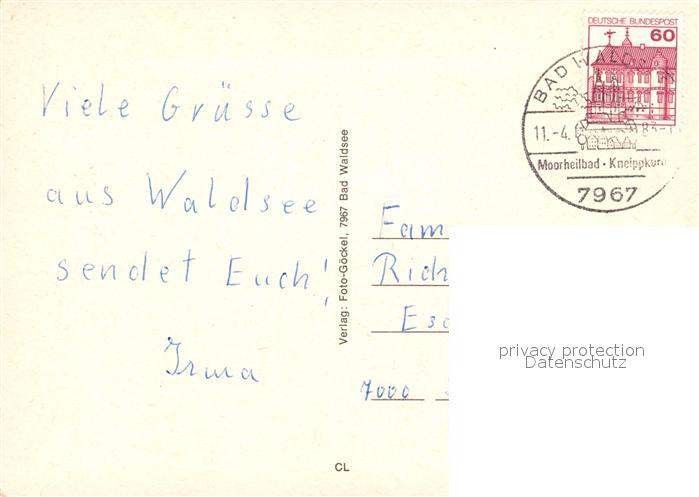 Viele Grüsse
aus Waldsee
sendet Euch!
Irma
Verlag: Foto-Göckel, 7967 Bad Waldsee
CL
DEUTSCHE BUNDESPOST
60
BAD WALDSEE
11.-4. 83-1
Moorheilbad · Kneippkuror
7967
Fam
Rich
Esc
7000
privacy protection
Datenschutz